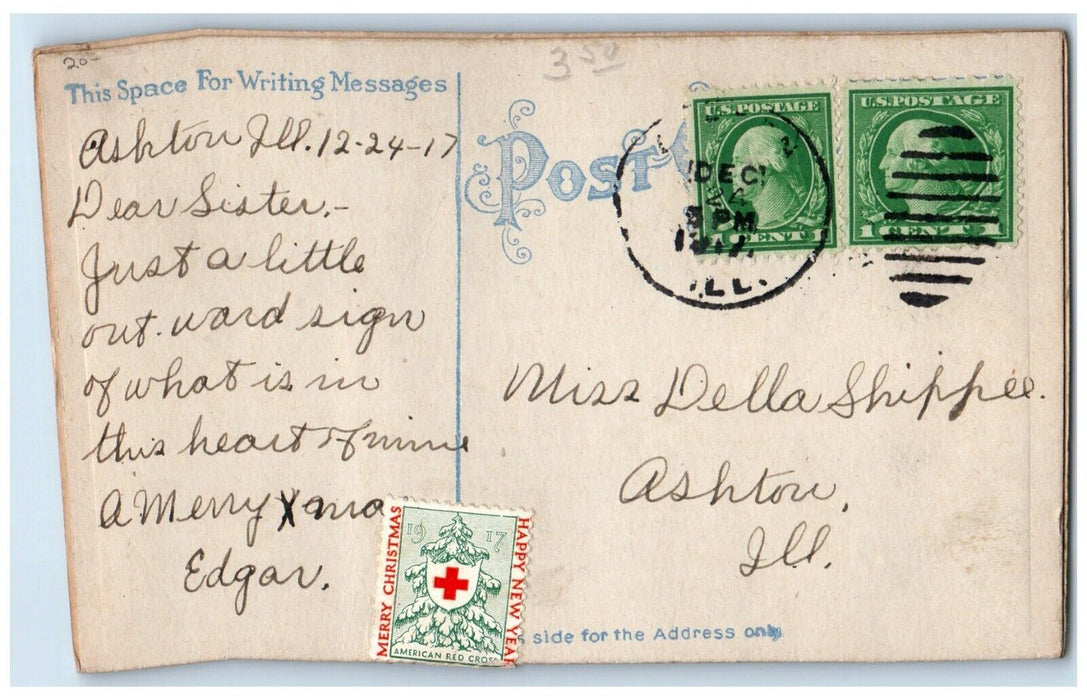 20-
3 50
This Space For Writing Messages
Ashton Ill. 12-24-17
Dear Sister.-
Just a little
out.ward sign
of what is in
this heart of mine
A Merry Xmas
Edgar.
POST
DEC
PM
ILL.
U.S. POSTAGE
1 CENT 1
U.S. POSTAGE
1 CENT 1
Miss Della Shippee.
Ashton,
Ill.
MERRY CHRISTMAS
1917
HAPPY NEW YEAR
AMERICAN RED CROSS
side for the Address only